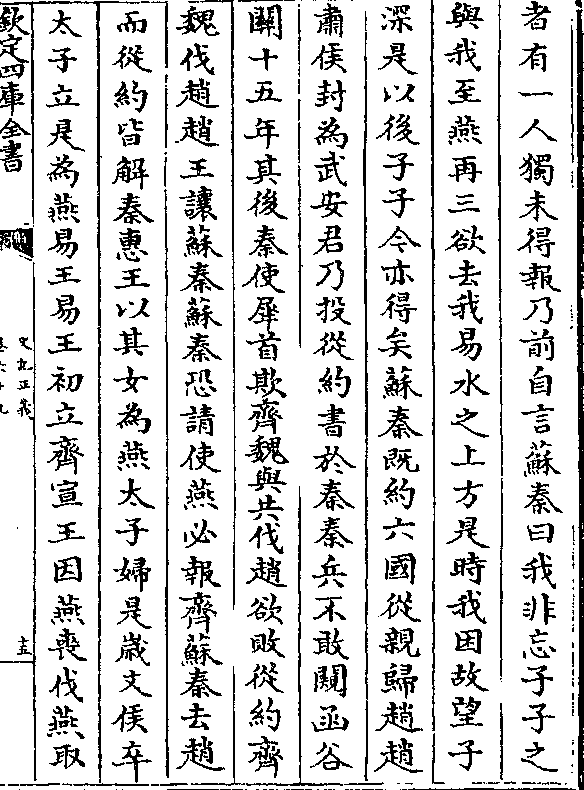 者有一人獨未得報乃前自言蘇秦曰我非忘子子之
與我至燕再三欲去我易水之上方是時我困故望子
深是以後子子今亦得矣蘇秦既約六國從親歸趙趙
肅侯封為武安君乃投從約書於秦秦兵不敢闚函谷
關十五年其後秦使犀首欺齊魏與共伐趙欲敗從約齊
魏伐趙趙王讓蘇秦蘇秦恐請使燕必報齊蘇秦去趙
而從約皆解秦惠王以其女為燕太子婦是歲文侯卒
太子立是為燕易王易王初立齊宣王因燕喪伐燕取
欽定四庫全書
史記正義
卷六十九
十五